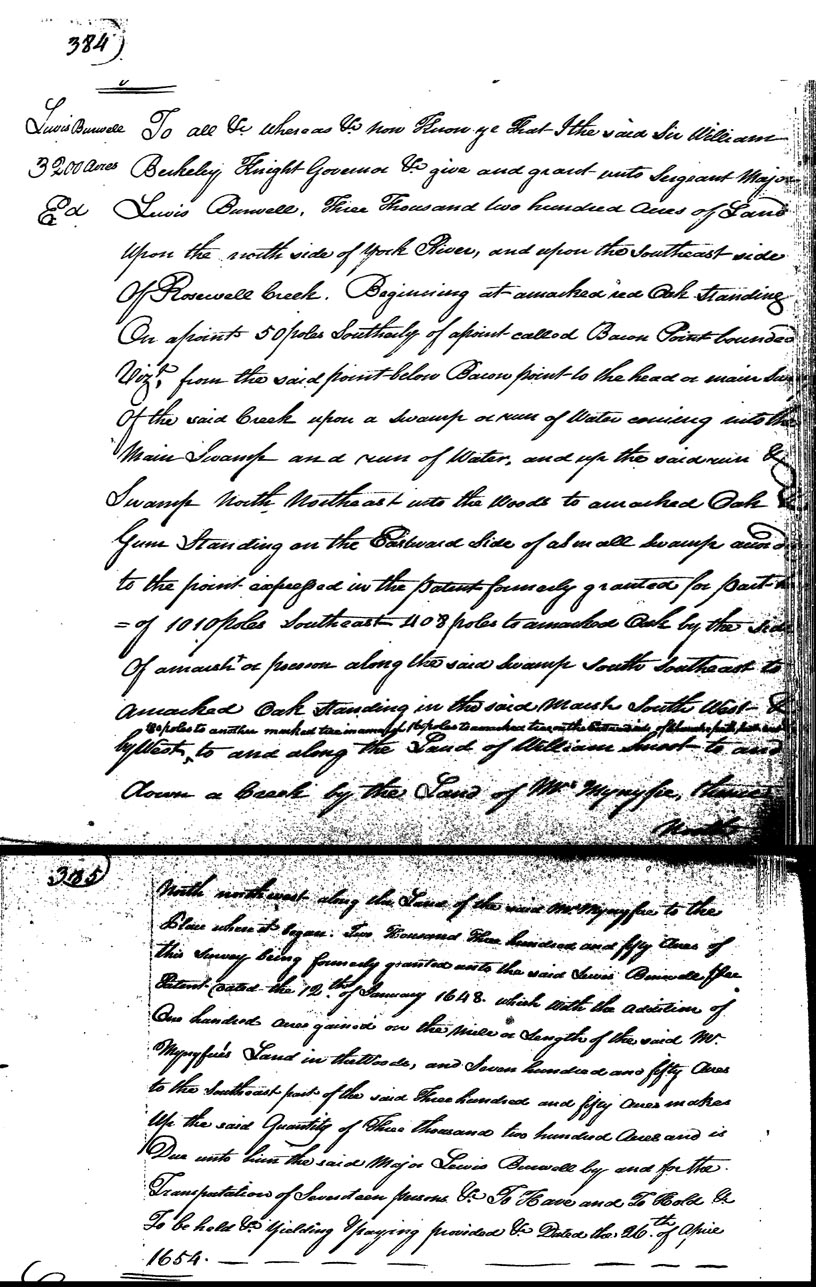 384
Lewis Burwell
3200 Acres
Ed
To all &c whereas &c now Know ye That I the said Sir William
Berkeley Knight Governor &c give and grant unto Sergeant Major
Lewis Burwell, Three Thousand two hundred Acres of Land
upon the north side of York River, and upon the Southeast side
Of Rosewell Creek. Beginning at amarked red Oak Standing
On apoint 50 poles Southerly of apoint called Bacon Point bounded
Vizt, from the said point below Bacon point to the head or main
Of the said Creek upon a Swamp or run of Water coming into the
Main Swamp and run of Water, and up the said run &
Swamp North Northeast into the Woods to amarked Oak &
Gum Standing on the Eastward Side of aSmall Swamp
to the point expressed in the Patent formerly granted for part
=of 1010 poles Southeast 408 poles to amarked Oak by the side
Of amarsh or pocoson along the said Swamp South Southeast to
amarked Oak Standing in the said Marsh South West &
poles to another marked tree poles to amarked tree
by West, to and along the Land of William Smoot to and
down a Creek by the Land of Mr Mynyfie, thence
North
385
North northwest along the Land of the said Mr Mynyfie to the
Place where it began. Two Thousand Three hundred and fifty Acres of
this Survey being formerly granted unto the said Lewis Burwell
Patent dated the 12th of January 1648. which with the addition of
One hundred acres gained on the Mile or Length of the said Mr
Mynyfie's Land in the Woods, and Seven hundred and fifty Acres
to the Southeast part of the said Three hundred and fifty Acres makes
Up the said Quantity of Three thousand two hundred Acres and is
Due unto him the said Major Lewis Burwell by and for the
Transportation of Seventeen persons &c To Have and To Hold &c
To be held &c yielding &paying provided &c Dated the 26th of Aprie
1654.